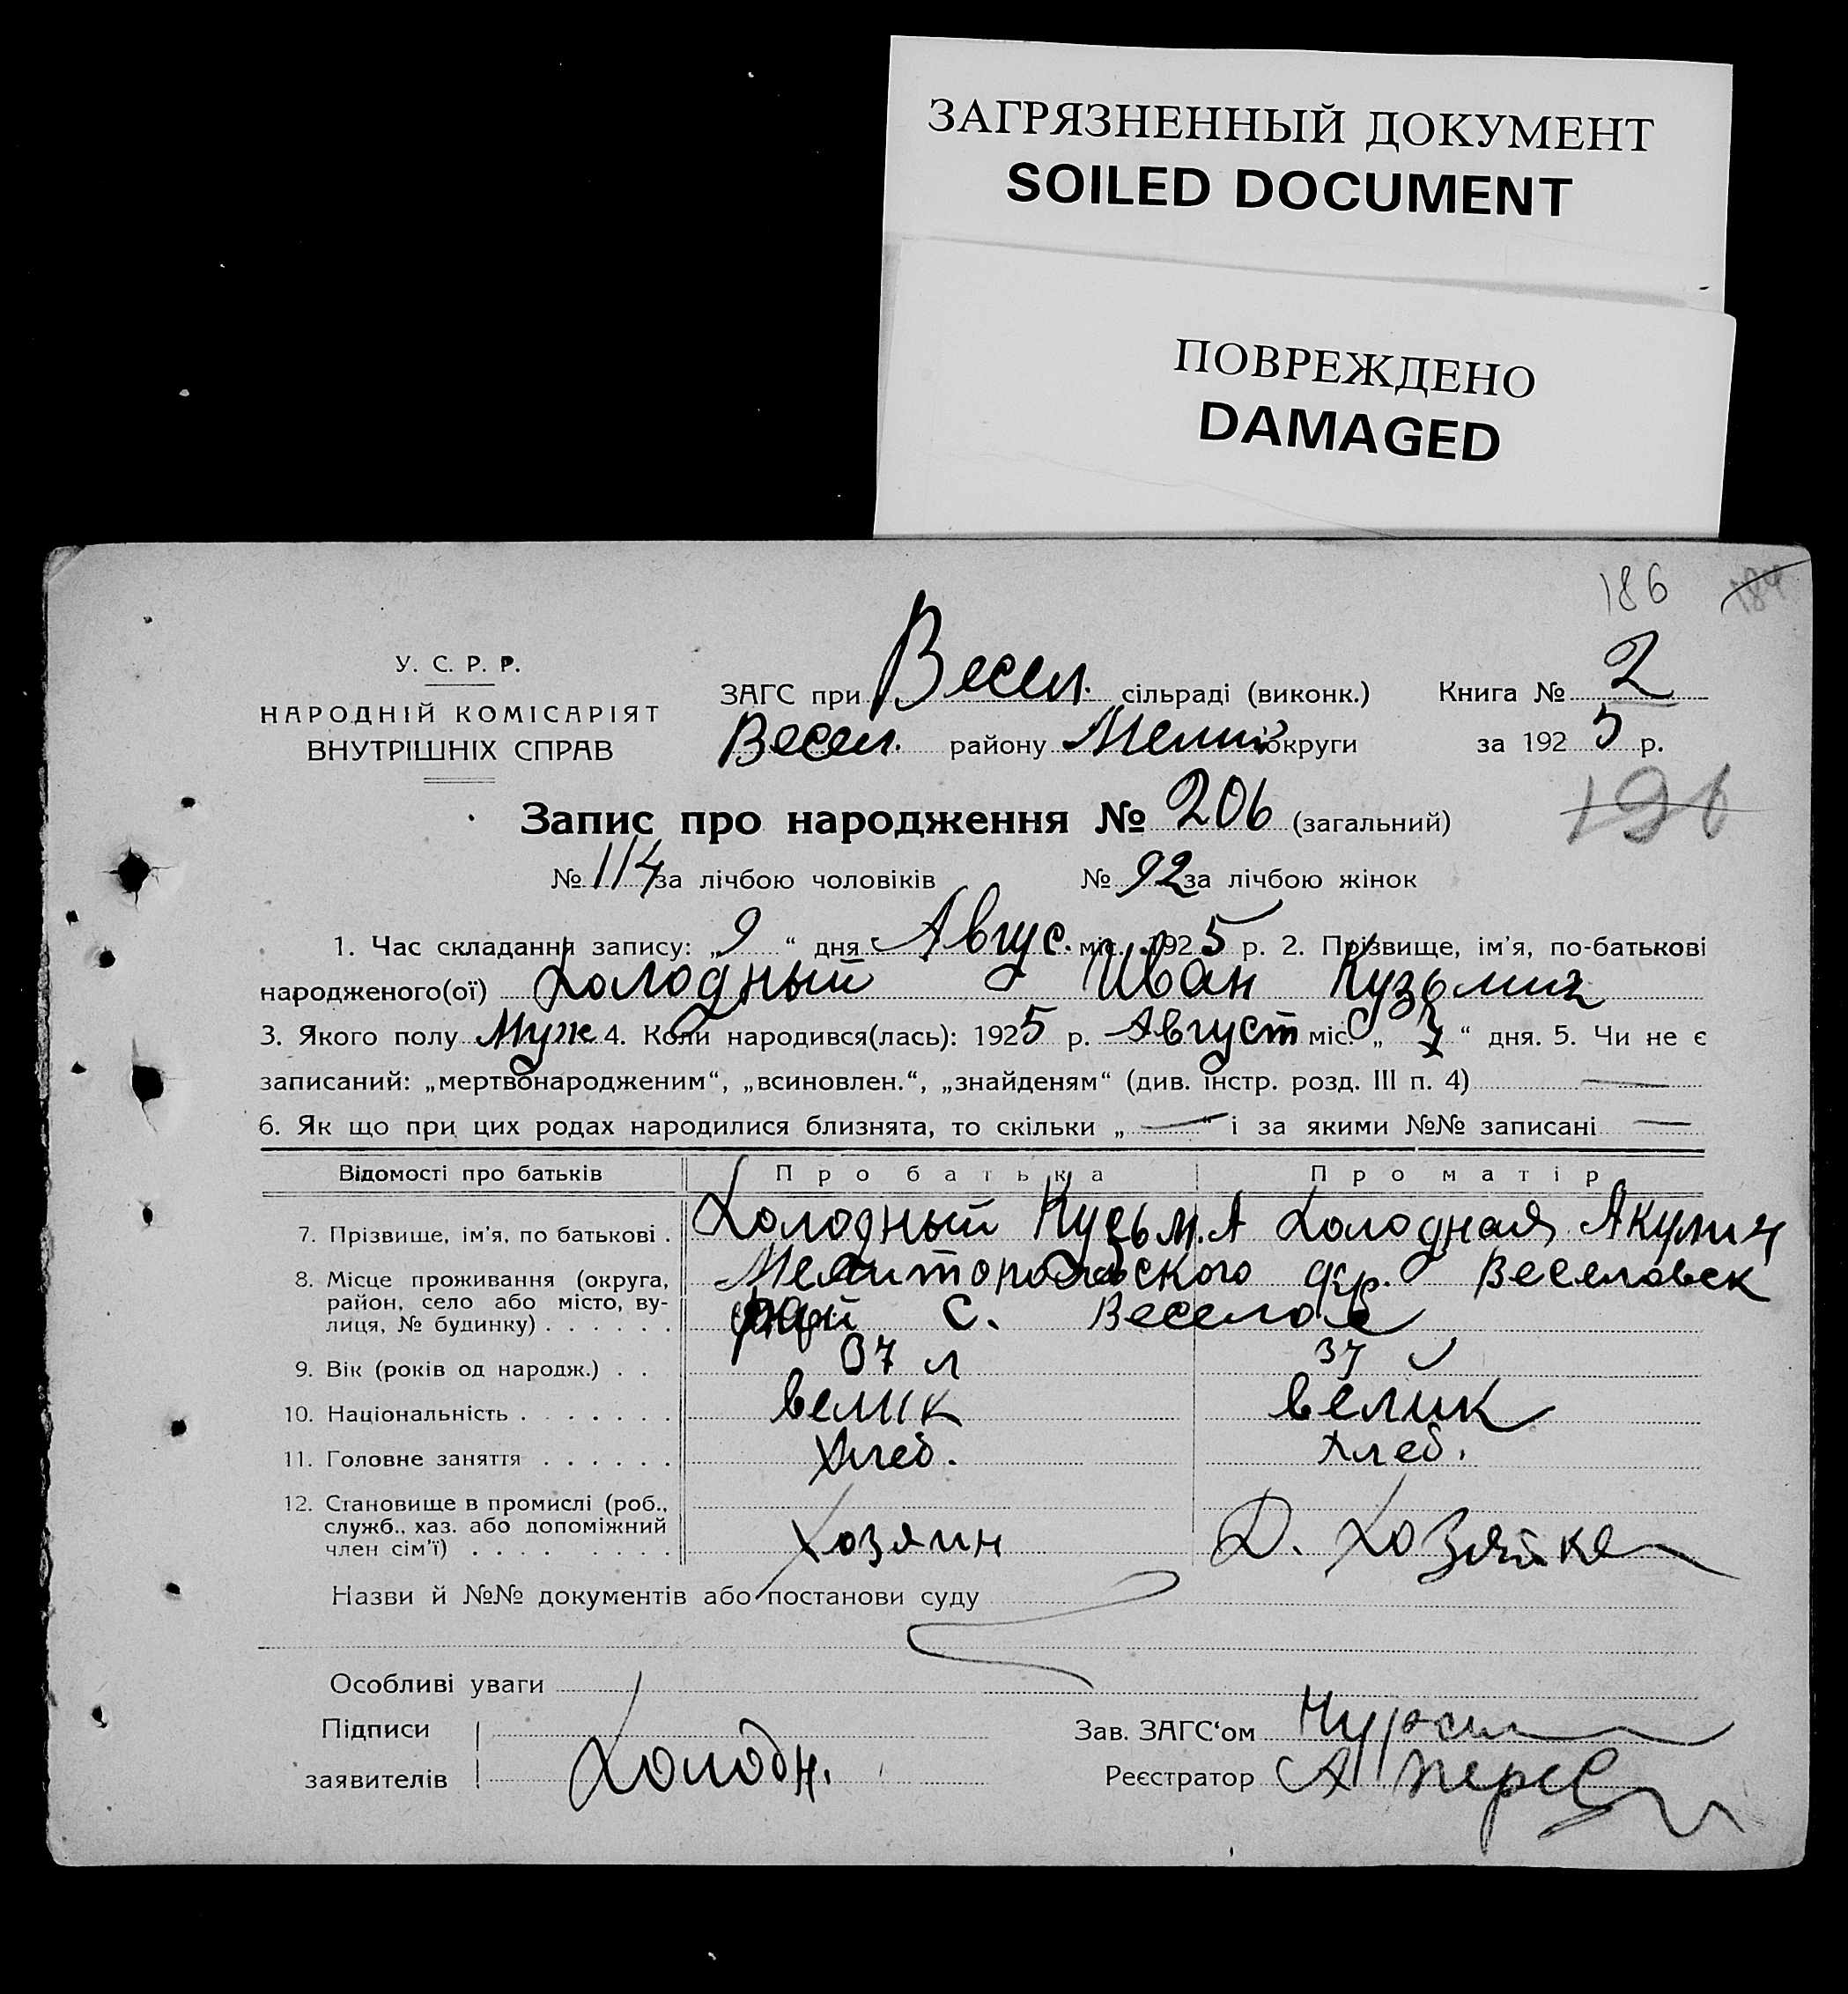 ЗАГРЯЗНЕННЫЙ ДОКУМЕНТ
SOILED DOCUMENT
ПОВРЕЖДЕНО
DAMAGED
186 184
У. С. Р. Р.
НАРОДНІЙ КОМІСАРІЯТ
ВНУТРІШНІХ СПРАВ
ЗАГС при Весел. сільраді (виконк.) Книга № 2
Весел. району Мелит округи за 1925 р.
Запис про народження № 206 (загальний) 191
№ 114 за лічбою чоловіків № 92 за лічбою жінок
1. Час складання запису: „9“ дня Авгус. міс. 1925 р. 2. Прізвище, ім'я, по-батькові
народженого(ої) Холодный Иван Кузьмич
3. Якого полу Муж 4. Коли народився(лась): 1925 р. Август міс. „7“ дня. 5. Чи не є
записаний: „мертвонародженим“, „всиновлен.“, „знайденям“ (див. інстр. розд. III п. 4) —
6. Як що при цих родах народилися близнята, то скільки „—“ і за якими №№ записані —
Відомості про батьків Про батька Про матір
7. Прізвище, ім'я, по батькові . Холодный Кузьм.А Холодная Акулич
8. Місце проживання (округа, Мелитопольского окр. Веселовск
район, село або місто, ву- рай с. Веселое
лиця, № будинку) . . . . . .
9. Вік (років од народж.) . . 37 л 37
10. Національність . . . . . . . велик велик
11. Головне заняття . . . . . . Хлеб. Хлеб.
12. Становище в промислі (роб.,
служб., хаз. або допоміжний Хозяин Д. Хозяйка
член сім'ї) . . . . . . . .
Назви й №№ документів або постанови суду
Особливі уваги
Підписи Зав. ЗАГС'ом
заявителів Холодн. Реєстратор А